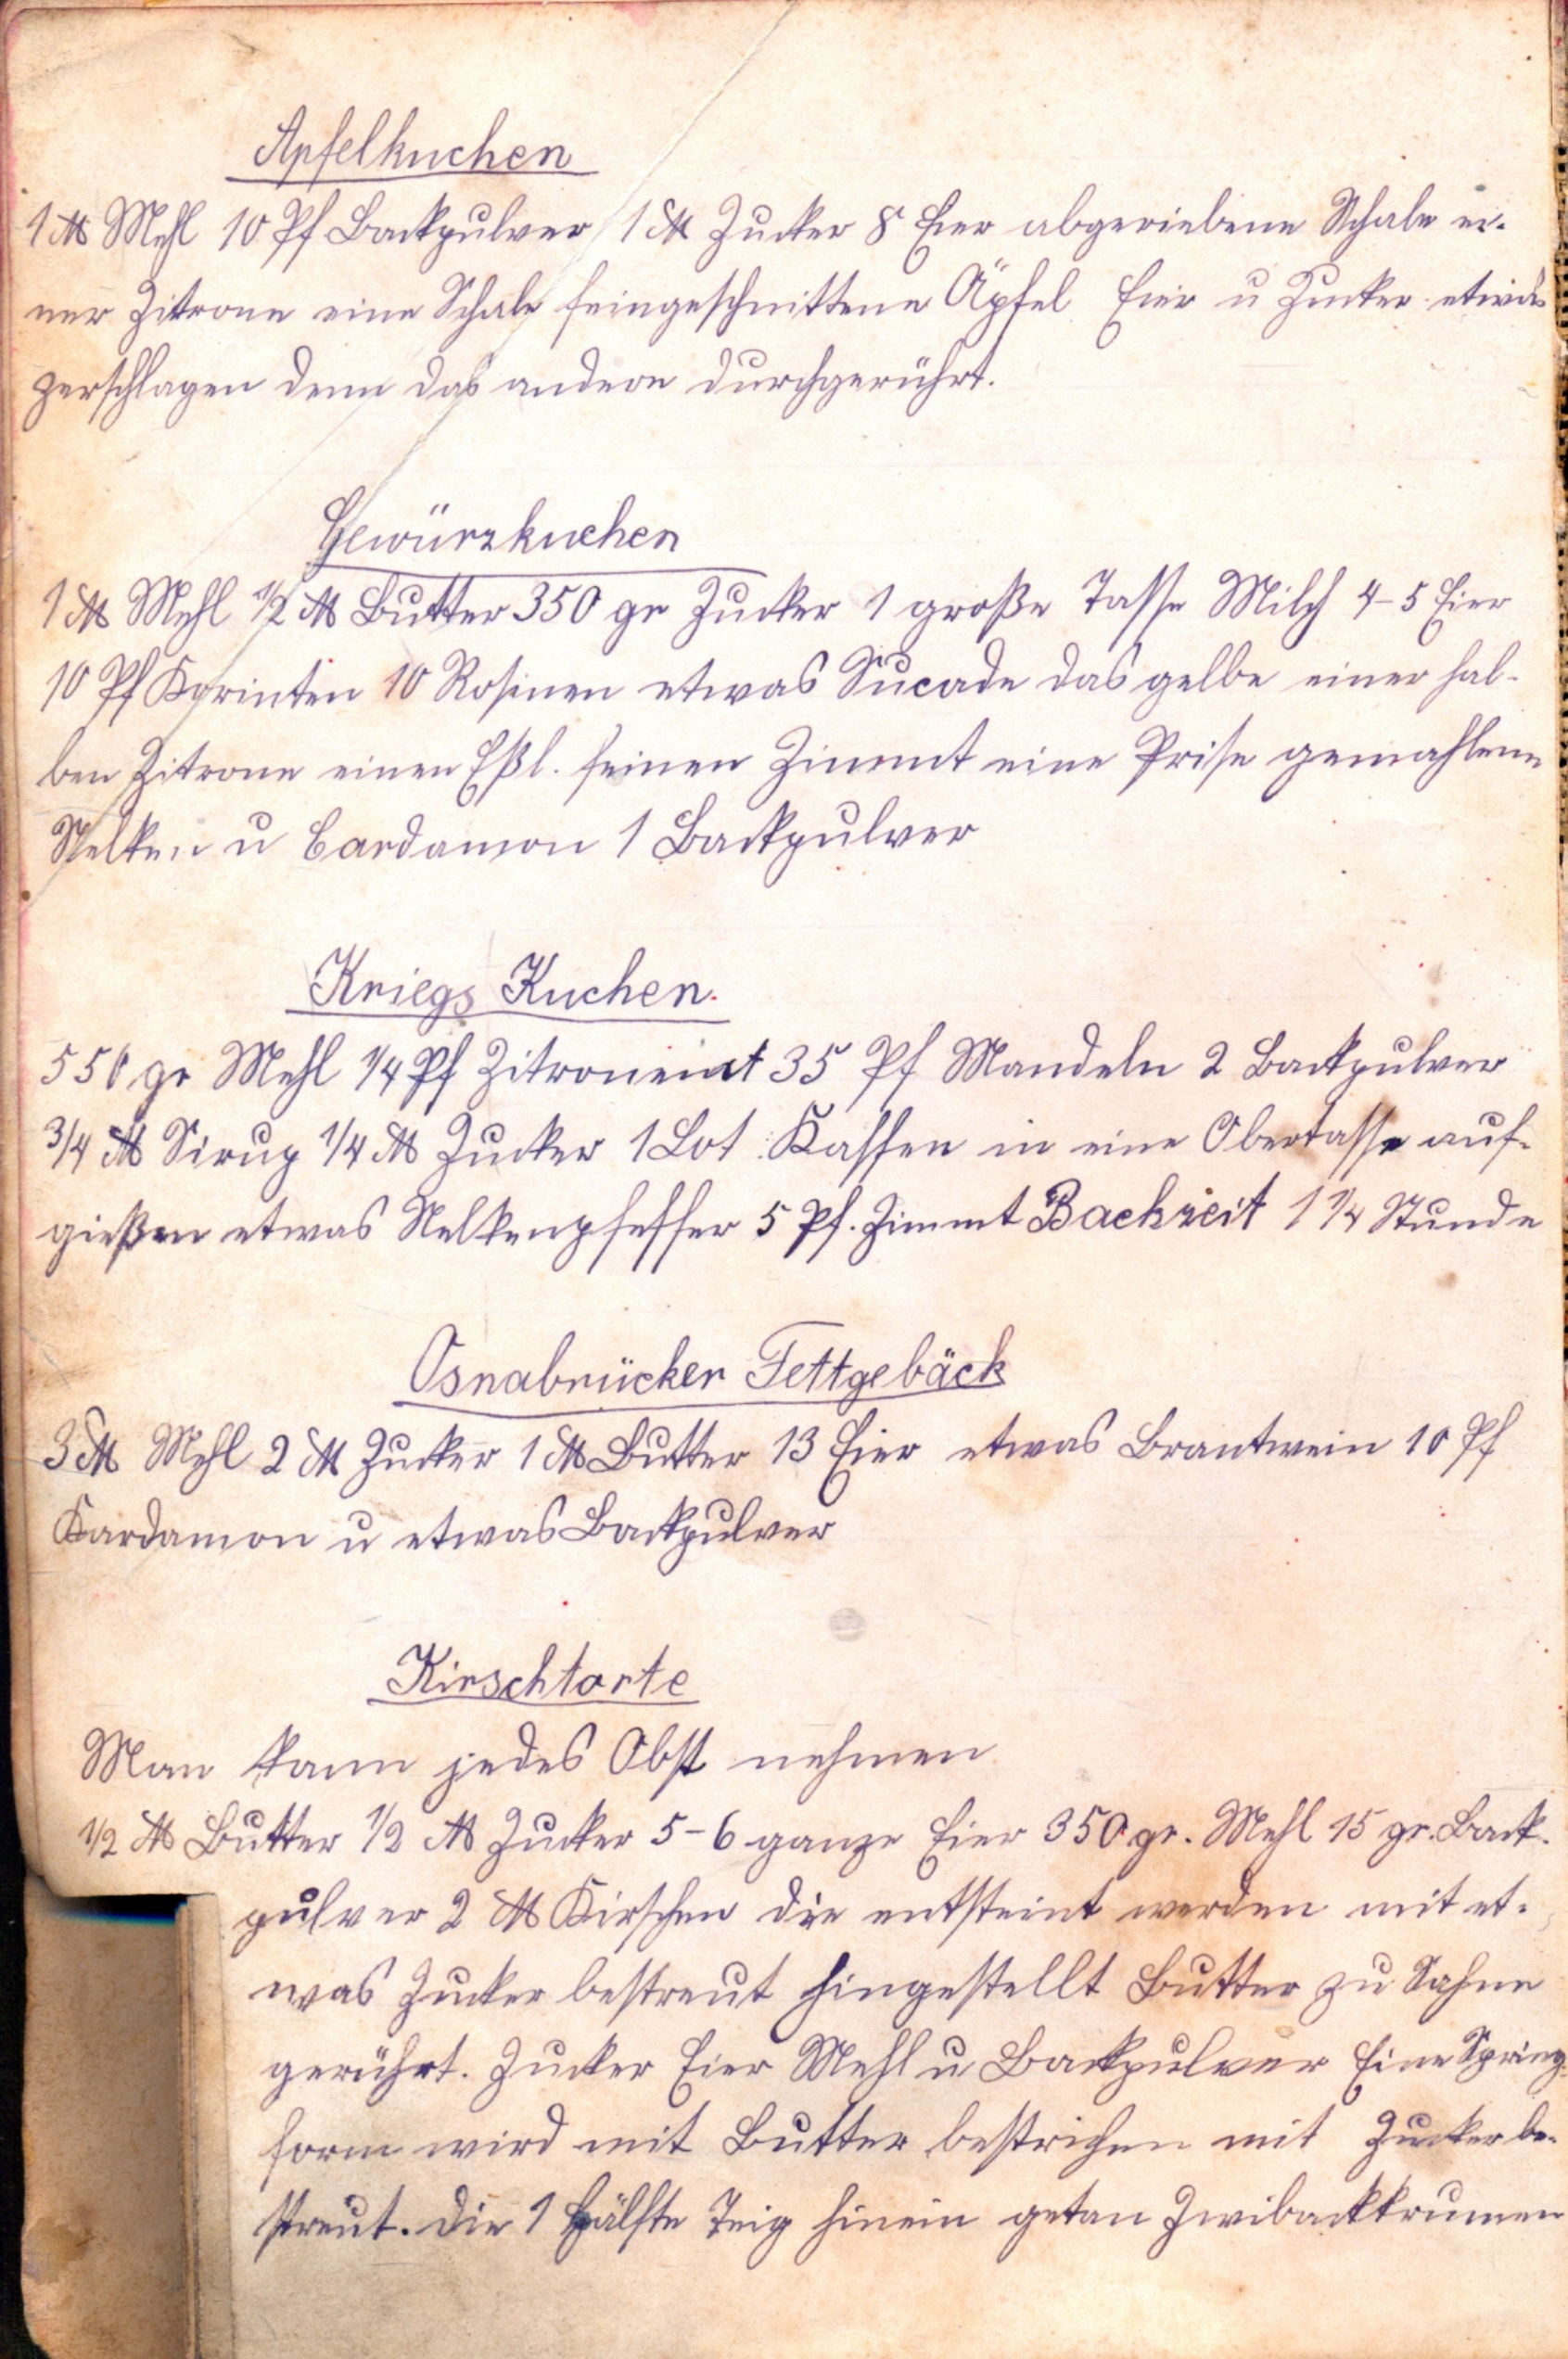 Apfelkuchen
1 ℔ Mehl 10 Pf Backpulver 1 ℔ Zucker 8 Eier abgeriebene Schale ei-
ner Zitrone eine Schale feingeschnittene Äpfel Eier u Zucker etwas
zerschlagen denn das andere durchgerührt.
Gewürzkuchen
1 ℔ Mehl 1/2 ℔ Butter 350 gr Zucker 1 große Tasse Milch 4-5 Eier
10 Pf Korinten 10 Rosinen etwas Sucade das gelbe einer hal-
ben Zitrone einen Eßl. feinen Zimmt eine Prise gemahlene
Nelken u Cardamon 1 Backpulver
Kriegs Kuchen.
550 gr Mehl 1/4 Pf Zitronenat 35 Pf Mandeln 2 Backpulver
3/4 ℔ Sirup 1/4 ℔ Zucker 1 Lot Kaffee in eine Obertasse auf-
gießen etwas Nelkenpfeffer 5 Pf. Zimmt Backzeit 1 1/4 Stunde
Osnabrücker Fettgebäck
3 ℔ Mehl 2 ℔ Zucker 1 ℔ Butter 13 Eier etwas Brantwein 10 Pf
Kardamon u etwas Backpulver
Kirschtorte
Man kann jedes Obst nehmen
1/2 ℔ Butter 1/2 ℔ Zucker 5-6 ganze Eier 350 gr. Mehl 15 gr. Back-
pulver 2 ℔ Kirschen die entsteint werden mit et-
was Zucker bestreut hingestellt Butter zu Sahne
gerührt. Zucker Eier Mehl u Backpulver Eine Spring-
form wird mit Butter bestrichen mit Zucker be-
streut. Die 1 Hälfte Teig hinein getan Zwibackkrumen